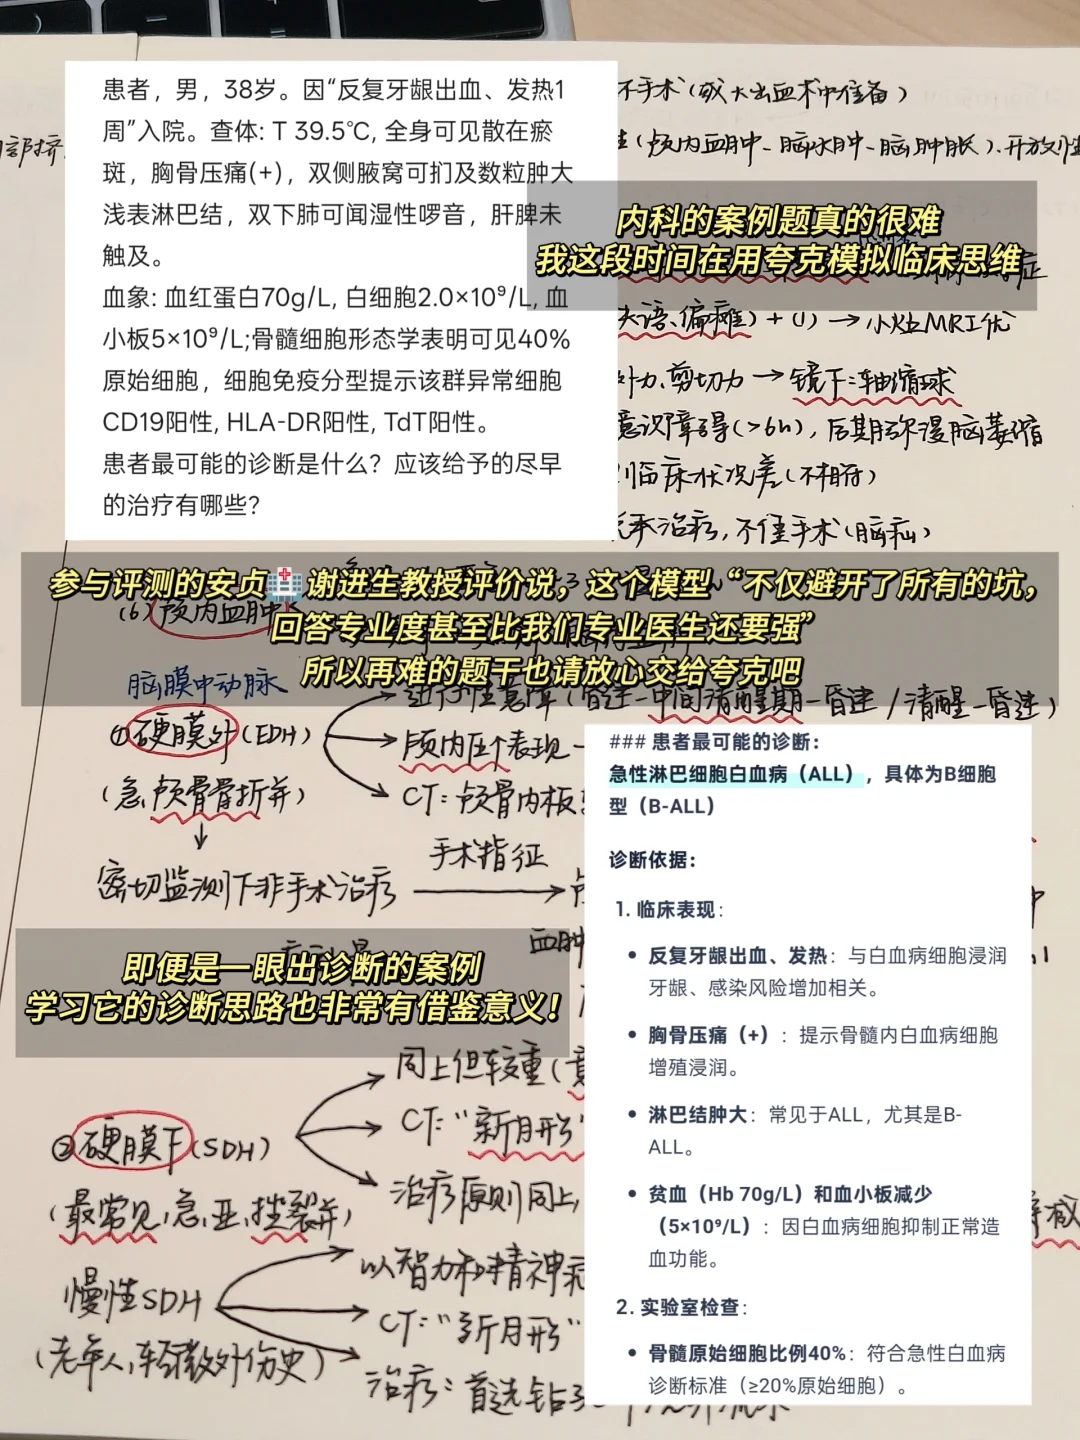 患者，男，38岁。因“反复牙龈出血、发热1
周”入院。查体: T 39.5℃, 全身可见散在瘀
斑，胸骨压痛(+)，双侧腋窝可扪及数粒肿大
浅表淋巴结，双下肺可闻湿性啰音，肝脾未
触及。
血象: 血红蛋白70g/L, 白细胞2.0×10⁹/L, 血
小板5×10⁹/L;骨髓细胞形态学表明可见40%
原始细胞，细胞免疫分型提示该群异常细胞
CD19阳性, HLA-DR阳性, TdT阳性。
患者最可能的诊断是什么？应该给予的尽早
的治疗有哪些？
不手术(或大出血术中准备)
(颅内血肿-脑水肿-脑肿胀)、开放
内科的案例题真的很难
我这段时间在用夸克模拟临床思维
失语、偏瘫) + (1) → 小灶MRI优
剪切力 → 镜下:轴缩球
意识障碍(>6h), 后期弥漫脑萎缩
临床状况差(不相符)
手术治疗, 不佳手术(脑疝)
参与评测的安贞🏥谢进生教授评价说，这个模型“不仅避开了所有的坑，
回答专业度甚至比我们专业医生还要强”
所以再难的题干也请放心交给夸克吧
(6)颅内血肿
脑膜中动脉
①硬膜外(EDH)
(急,颅骨骨折并)
进行性意障(昏迷-中间清醒期-昏迷/清醒-昏迷)
颅内压个表现-
CT: 颅骨内板
密切监测下非手术治疗
手术指征
### 患者最可能的诊断：
急性淋巴细胞白血病（ALL），具体为B细胞
型（B-ALL）
诊断依据：
1. 临床表现：
• 反复牙龈出血、发热：与白血病细胞浸润
牙龈、感染风险增加相关。
• 胸骨压痛（+）：提示骨髓内白血病细胞
增殖浸润。
• 淋巴结肿大：常见于ALL，尤其是B-
ALL。
• 贫血（Hb 70g/L）和血小板减少
（5×10⁹/L）：因白血病细胞抑制正常造
血功能。
2. 实验室检查：
• 骨髓原始细胞比例40%：符合急性白血病
诊断标准（≥20%原始细胞）。
即便是一眼出诊断的案例
学习它的诊断思路也非常有借鉴意义！
②硬膜下(SDH)
(最常见,急,亚,挫裂并)
同上但较重(
CT:"新月形"
治疗原则同上,
慢性SDH
(老年人,轻微外伤史)
以智力和精神症
CT:"新月形"
治疗: 首选钻